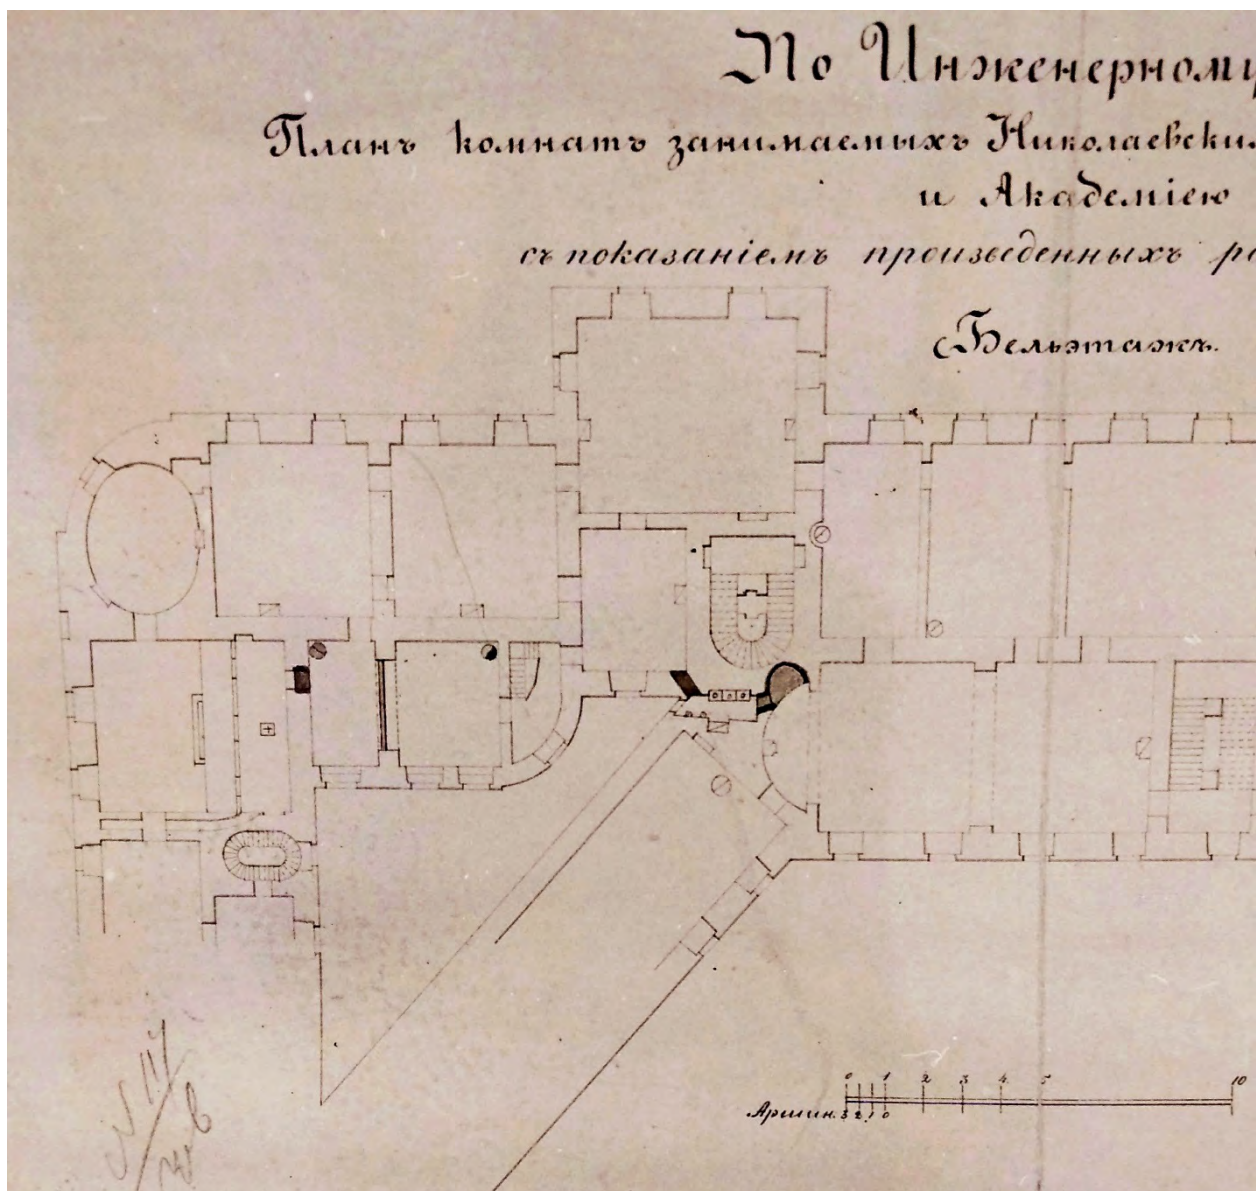 По Инженерному
Планъ комнатъ занимаемыхъ Николаевски
и Академіею
съ показаніемъ произведенныхъ ра
Бельэтажъ.
0 1 2 3 4 5 10
Аршин. 3 2 1 0